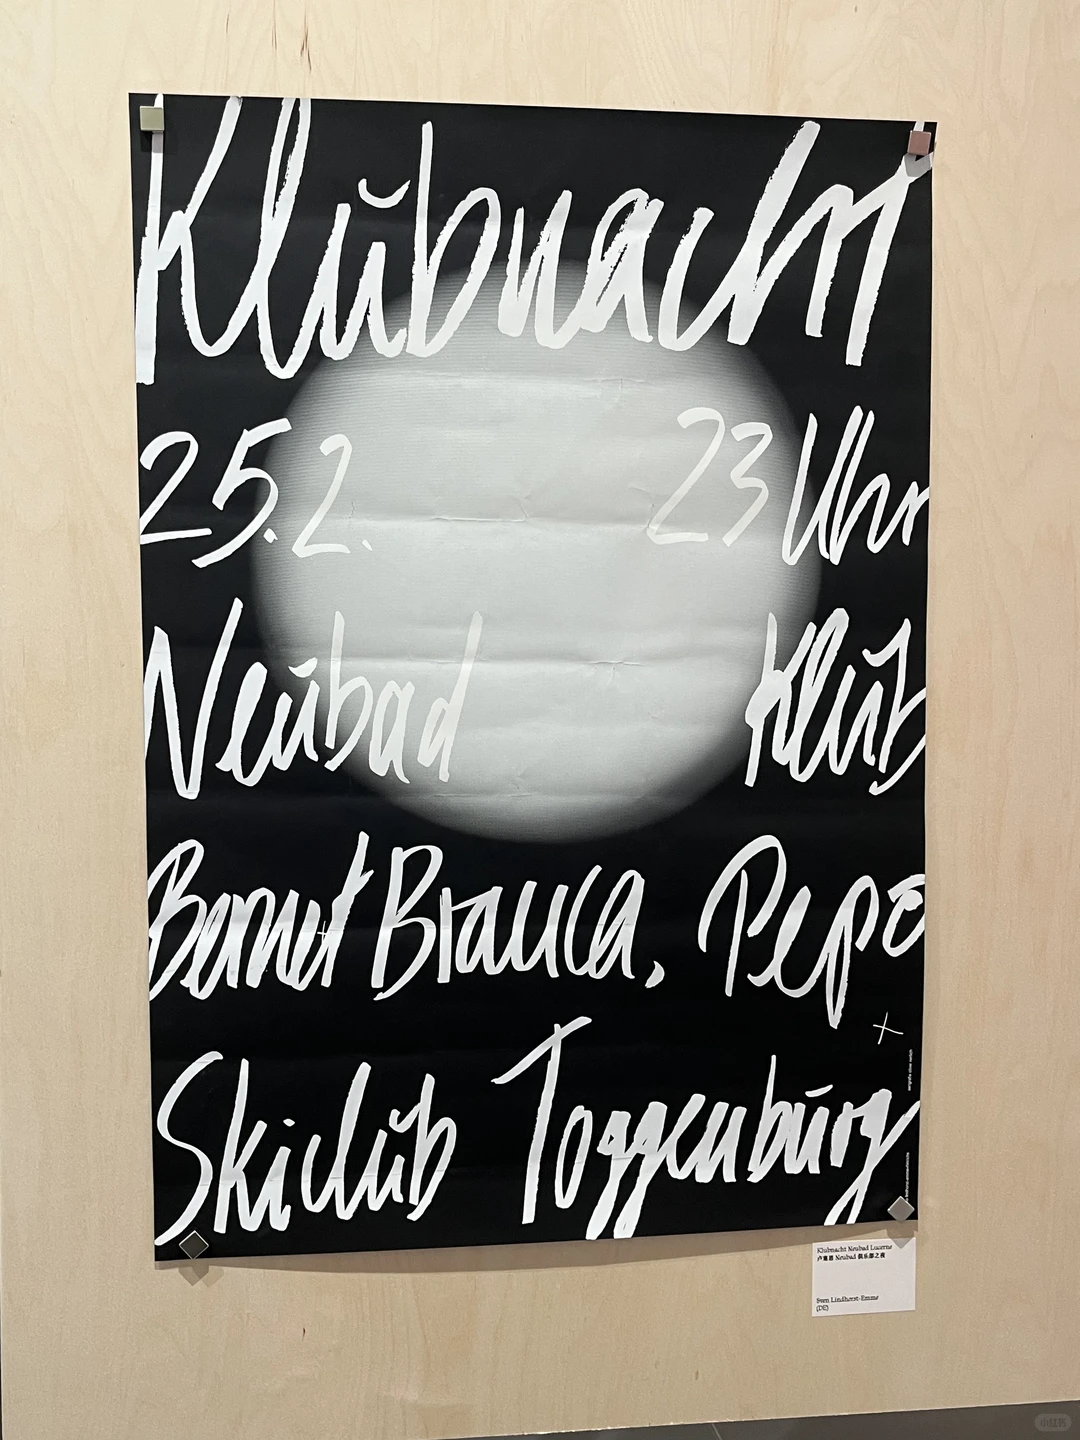 Klŭbnacht
25.2. 23 Uhr
Neŭbad Klŭb
Brauca, Pepe
+
Skiclŭb Toggenbŭrg
Klubnacht Neubad Lucerne
卢塞恩 Neubad 俱乐部之夜
Sven Lindhorst-Emme
(DE)
小红书